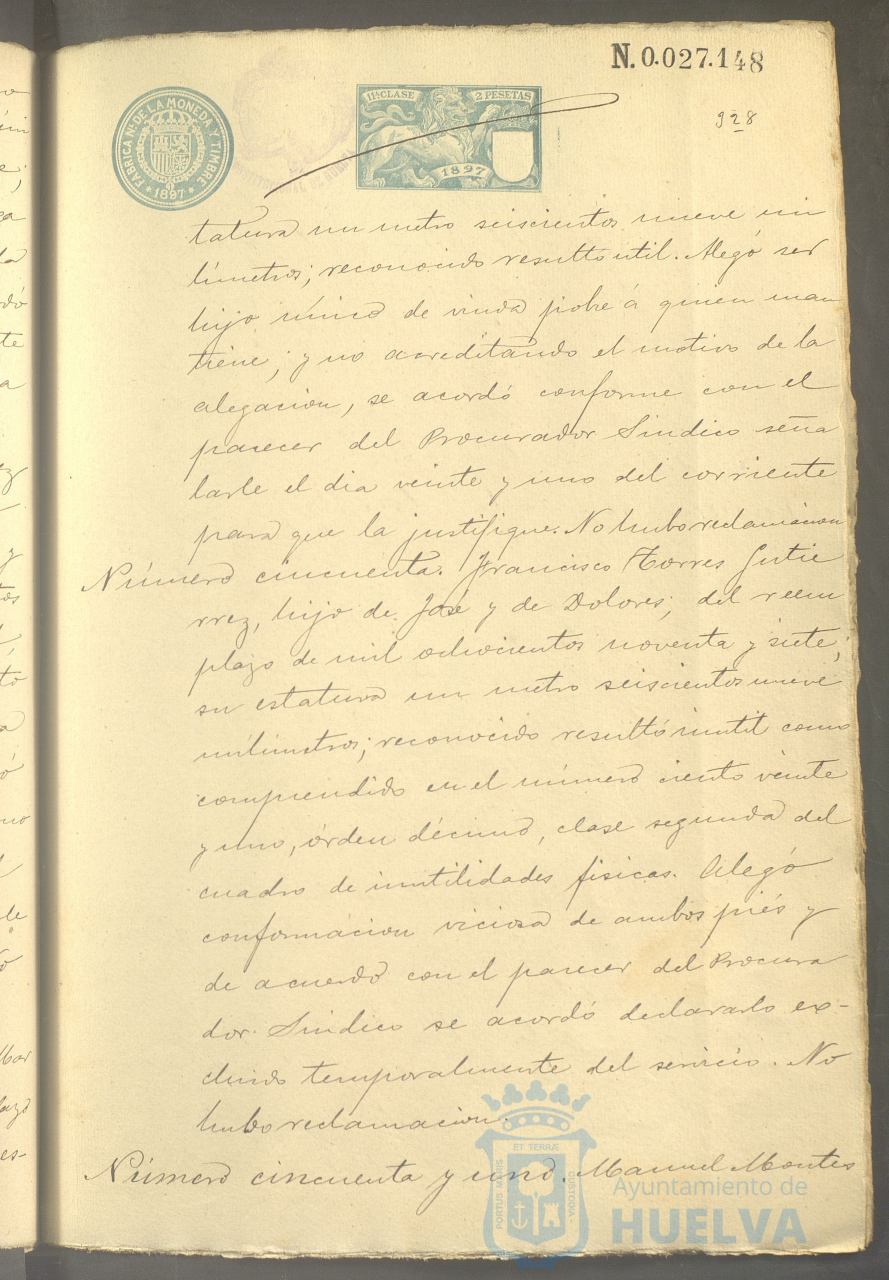 N. 0.027.148
FABRICA Nᴸ DE LA MONEDA Y TIMBRE
1897
11ª CLASE 2 PESETAS
1897
928
tatura un metro seiscientos nueve mi
límetros; reconocido resultó util. Alegó ser
hijo único de viuda pobre á quien man
tiene; y no acreditando el motivo de la
alegacion, se acordó conforme con el
parecer del Procurador Sindico seña
larle el dia veinte y uno del corriente
para que la justifique. No hubo reclamacion
Número cincuenta. Francisco Torres Gutie
rrez, hijo de José y de Dolores, del reem
plazo de mil ochocientos noventa y siete;
su estatura un metro seiscientos nueve
milimetros; reconocido resultó inutil como
comprendido en el número ciento veinte
y uno, órden décimo, clase segunda del
cuadro de inutilidades fisicas. Alegó
conformacion viciosa de ambos piés y
de acuerdo con el parecer del Procura
dor Sindico se acordó declararlo ex-
cluido temporalmente del servicio. No
hubo reclamacion.
Número cincuenta y uno. Manuel Montes
PORTUS MARIS ET TERRÆ CUSTODIA
Ayuntamiento de
HUELVA